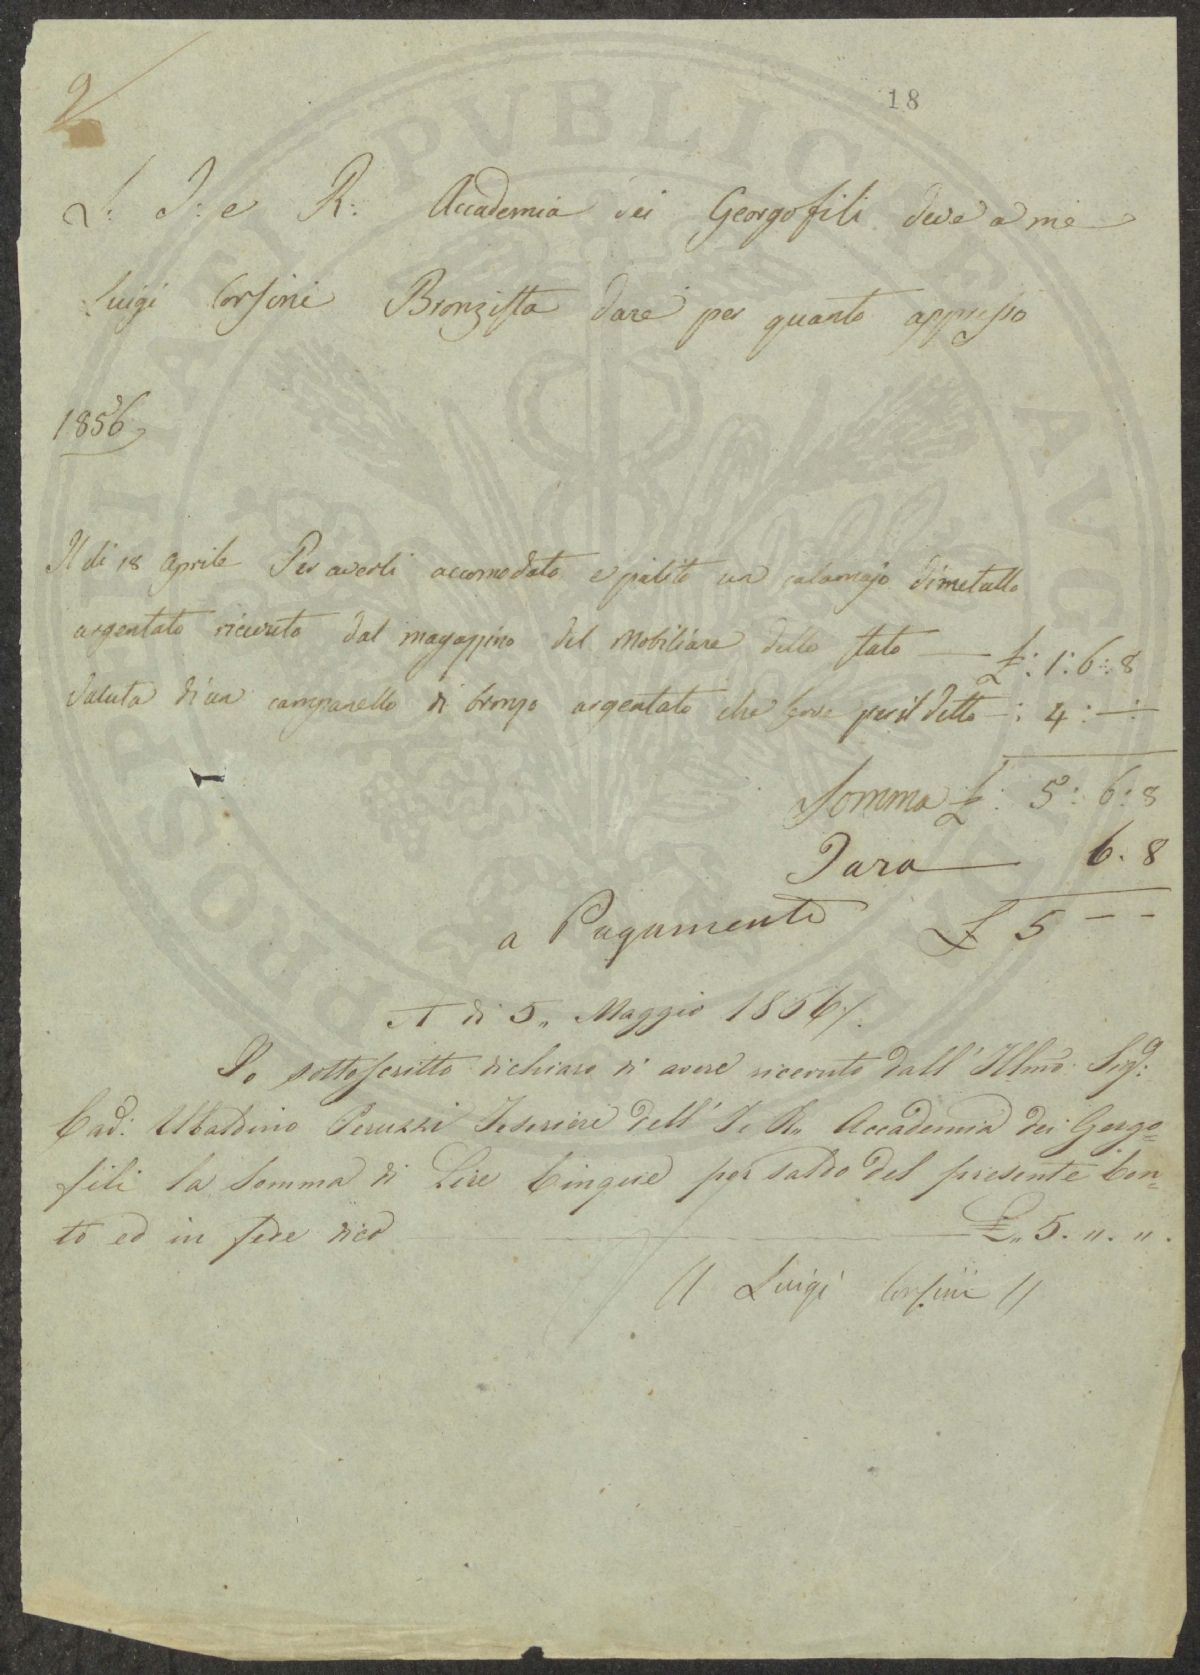 2
18
L: I: e R: Accademia dei Georgofili deve a me
Luigi Corsini Bronzista dare per quanto appresso
1856
Il di 18 Aprile Per averli accomodato e pulito un calamajo di metallo
argentato ricevuto dal magazzino del Mobiliare dello stato — £: 1: 6: 8
Valuta di un campanello di bronzo argentato che serve per il detto —: 4: —:
Somma £: 5: 6: 8
Tara — 6. 8
a Pagamento £ 5 — —
A di 5,, Maggio 1856/.
Io sottoscritto dichiaro di avere ricevuto dall' Illmo Sigr:
Cav: Ubaldino Peruzzi Tesoriere dell' I. R. Accademia dei Gorgo=
fili la somma di Lire Cinque per saldo del presente Con=
to ed in fede dico — £,, 5. ,, . ,, .
// Luigi Corsini //
PROSPERITATI PVBLICAE AVGENDAE